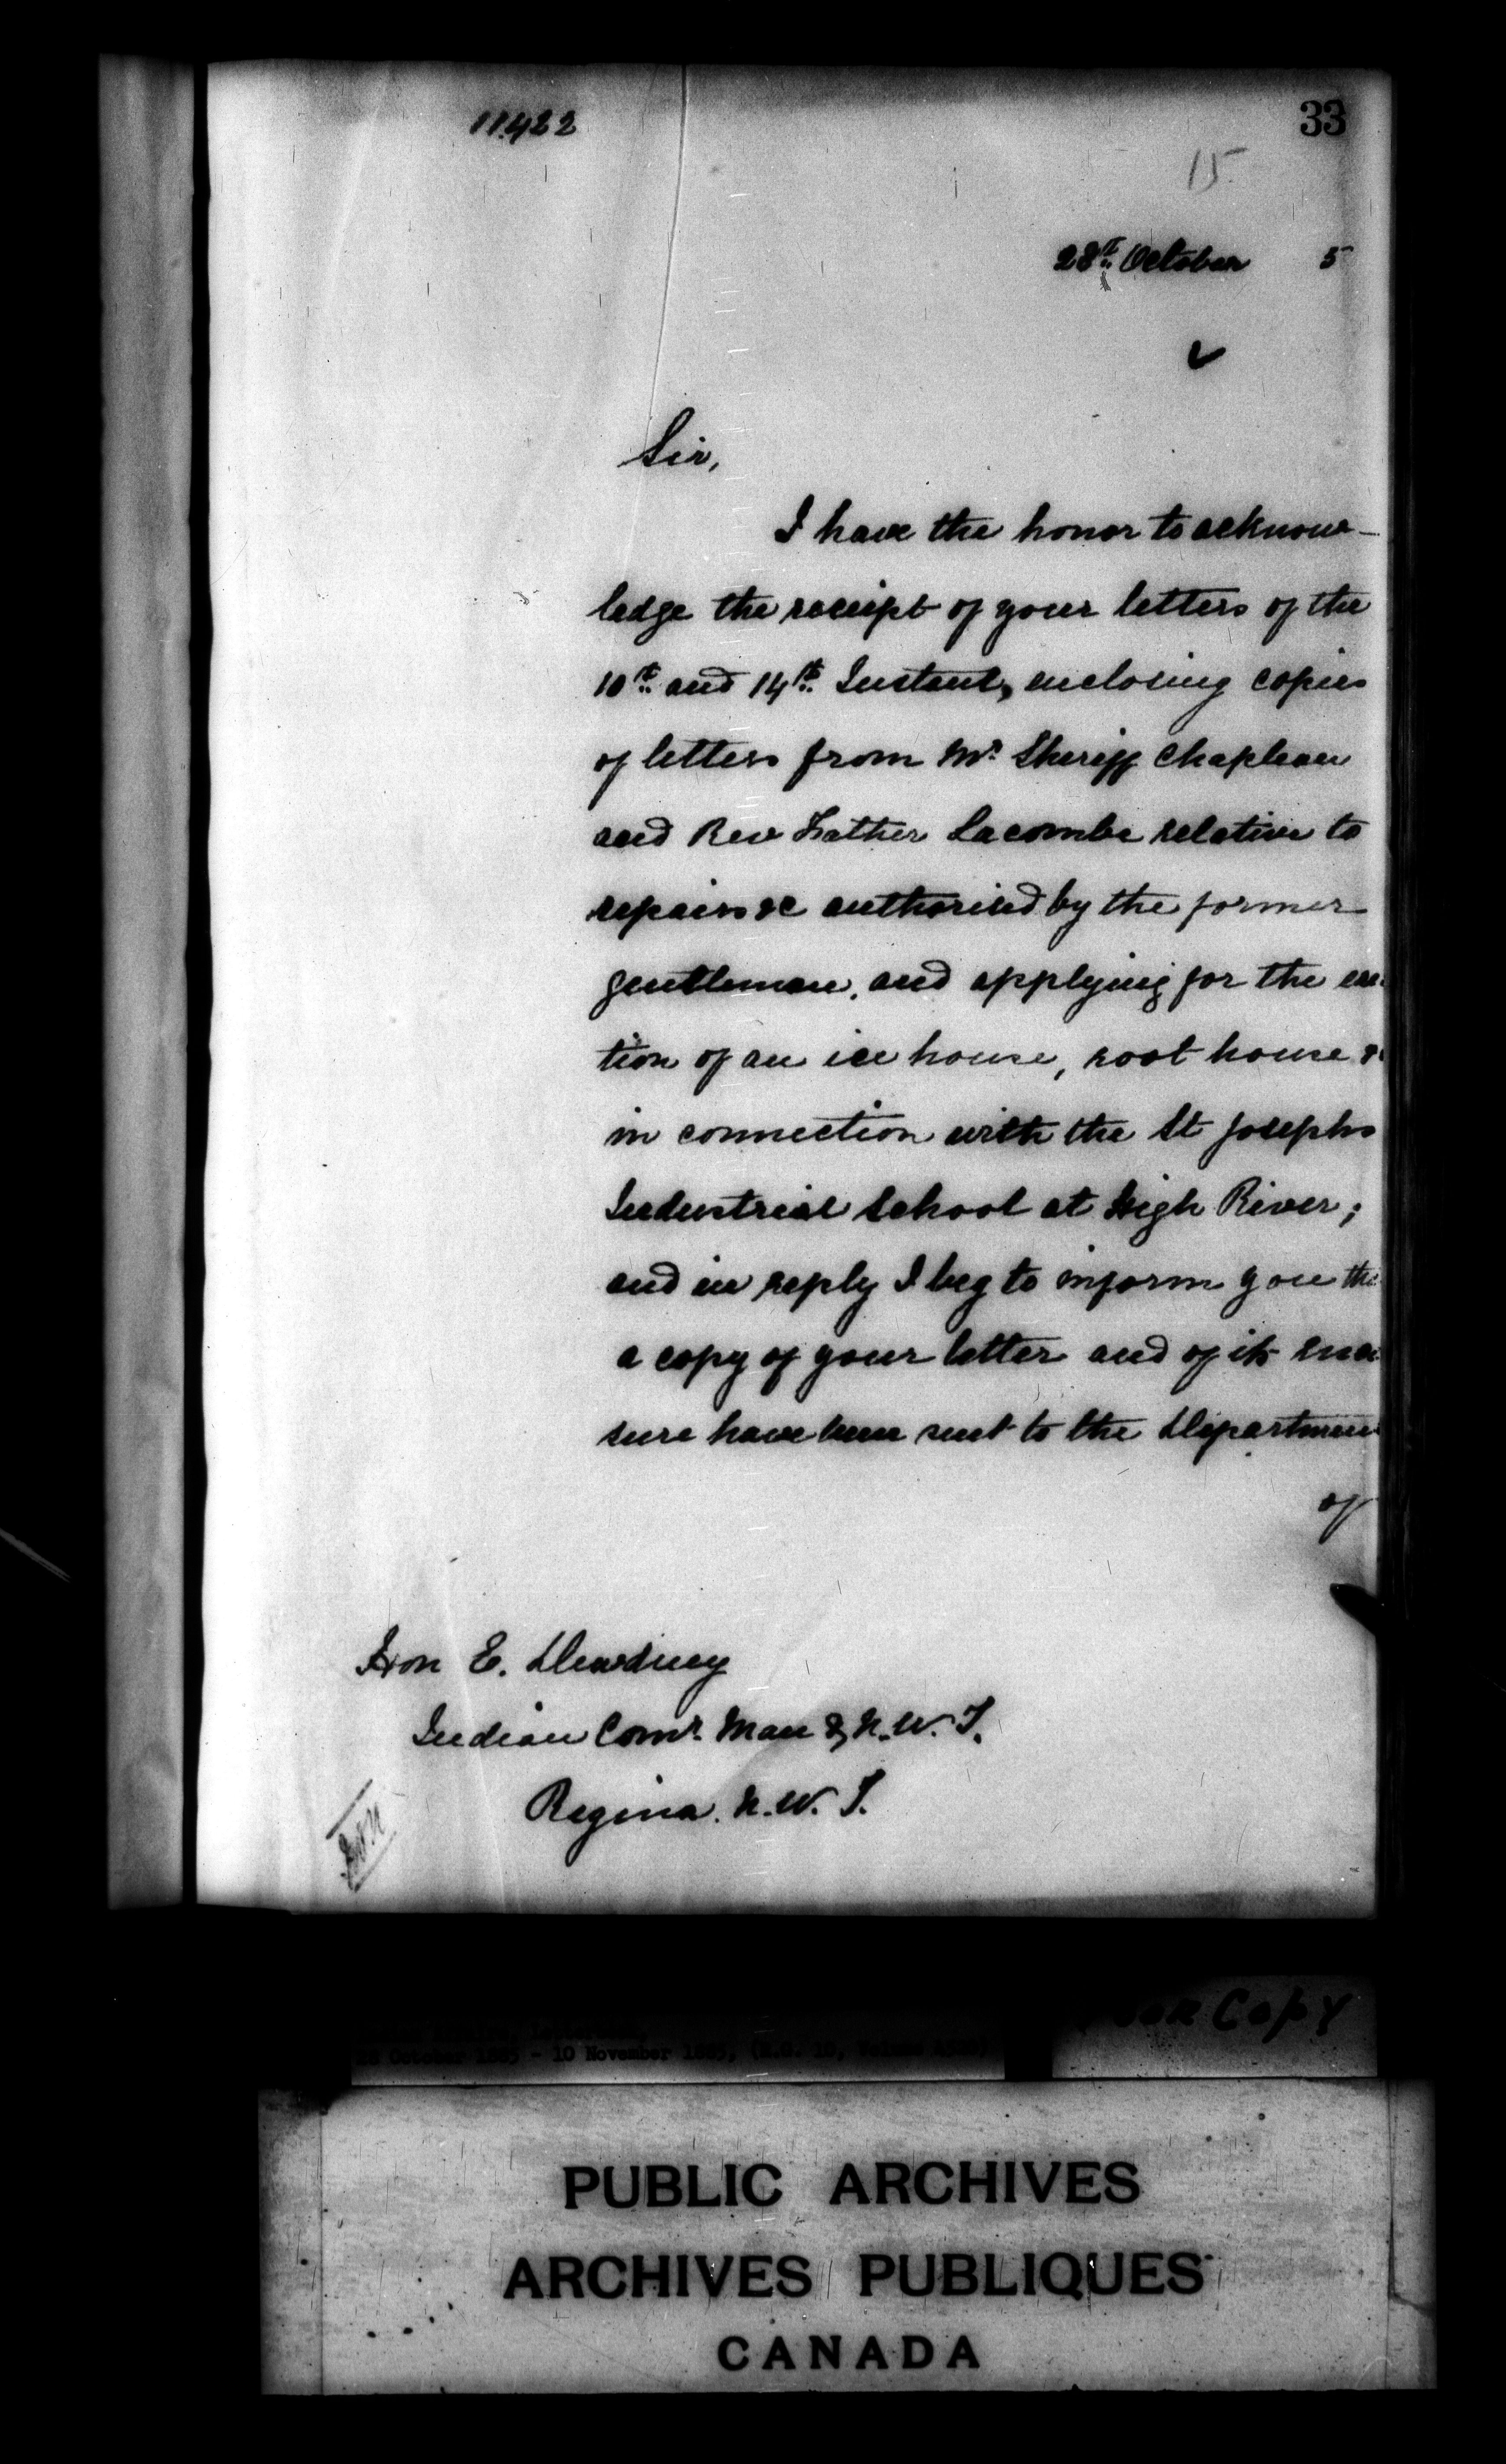 11422
33
15
28th October 5
Sir,
I have the honor to acknow-
ledge the receipt of your letters of the
10th and 14th Instant, enclosing copies
of letters from Mr Sheriff Chapleau
and Rev Father Lacombe relative to
repairs &c authorised by the former
gentleman, and applying for the erec
tion of an ice house, root house &
in connection with the St Josephs
Industrial School at High River;
and in reply I beg to inform you tha
a copy of your letter and of its enclo
sure have been sent to the Departmen
of
Hon E. Dewdney
Indian Comr. Man & N.W.T.
Regina. N.W.T.
Copy
October 1885 - 10 November 1885, (R.G. 10, Volume
PUBLIC ARCHIVES
ARCHIVES PUBLIQUES
CANADA